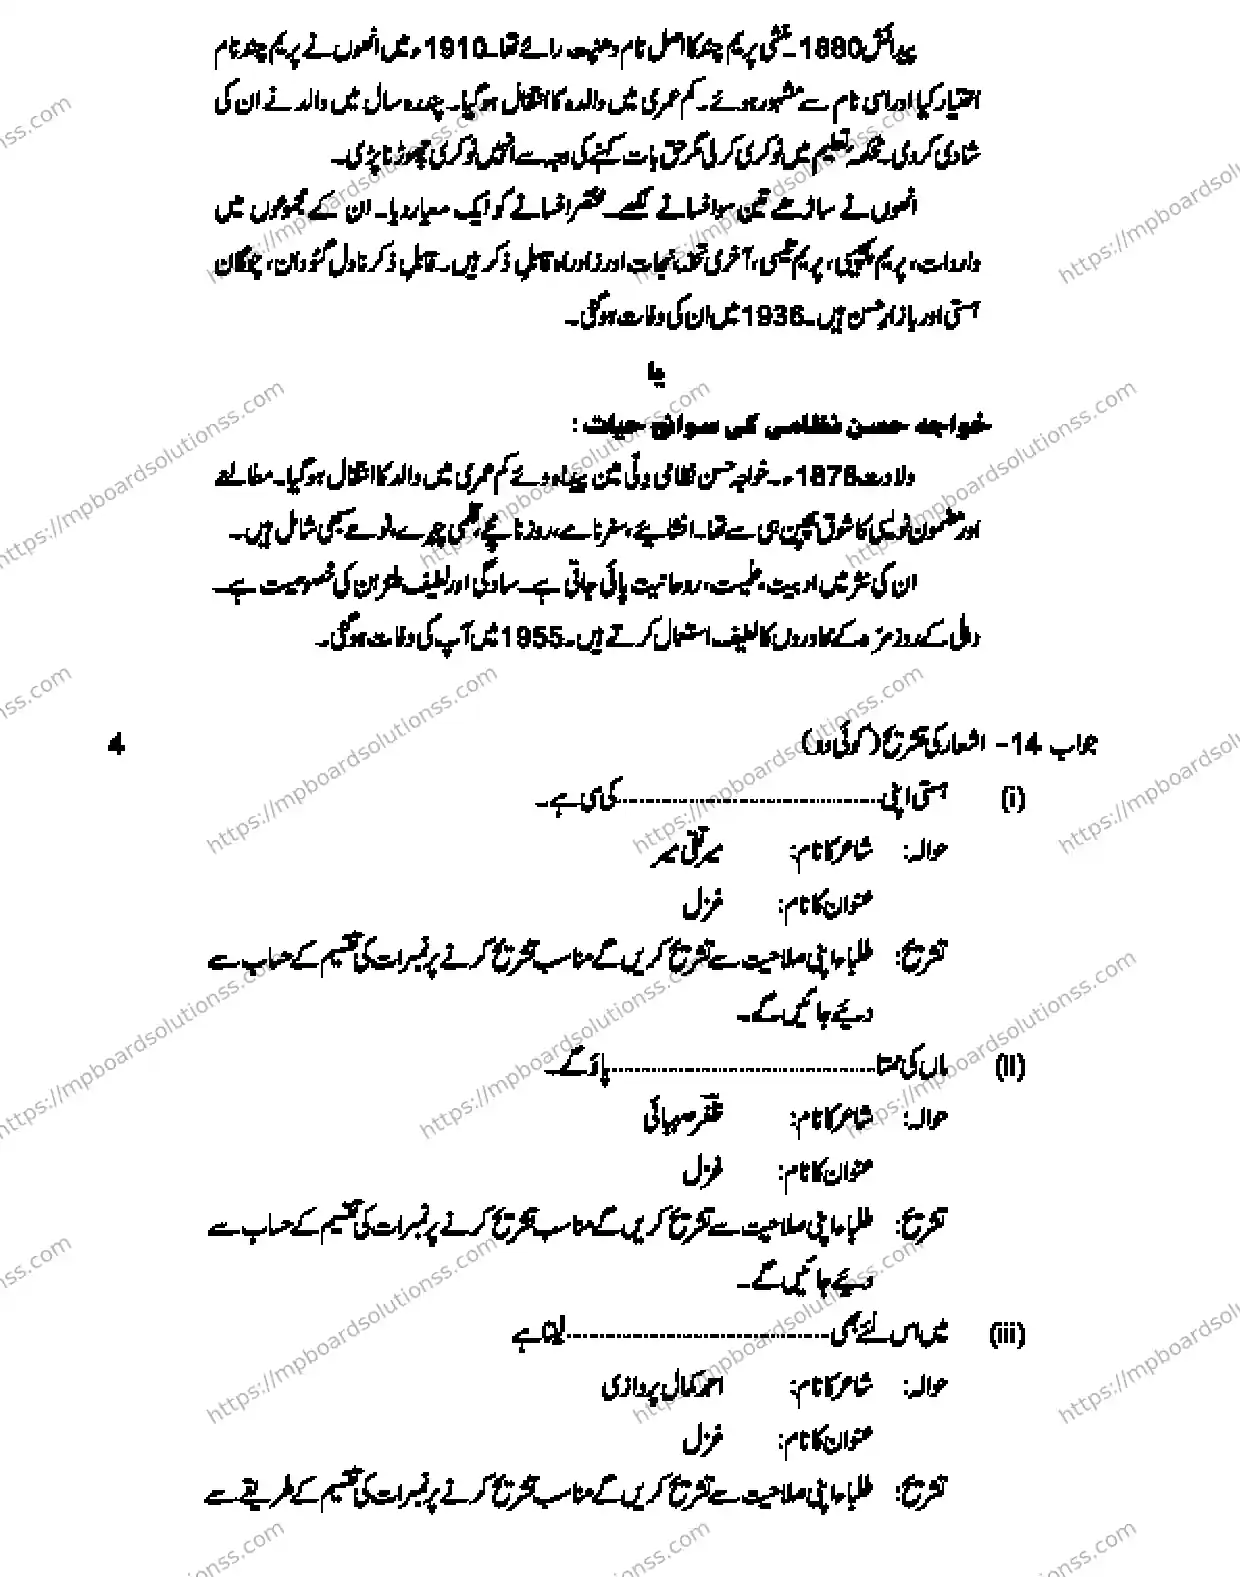 پیدائش 1880۔ منشی پریم چند کا اصل نام دھنپت رائے تھا۔ 1910ء میں انھوں نے پریم چند نام
اختیار کیا اور اسی نام سے مشہور ہوئے۔ کم عمری میں والدہ کا انتقال ہو گیا۔ پندرہ سال میں والد نے ان کی
شادی کر دی۔ محکمہ تعلیم میں نوکری کر لی مگر حق بات کہنے کی وجہ سے انھیں نوکری چھوڑنا پڑی۔
انھوں نے ساڑھے تین سو افسانے لکھے۔ مختصر افسانے کو ایک معیار دیا۔ ان کے مجموعوں میں
واردات، پریم پچیسی، پریم بتیسی، آخری تحفہ، نجات اور زادِ راہ قابلِ ذکر ہیں۔ قابلِ ذکر ناول گئودان، چوگان
ہستی اور بازارِ حسن ہیں۔ 1936 میں ان کی وفات ہو گئی۔
یا
خواجہ حسن نظامی کی سوانح حیات :
ولادت 1878ء۔ خواجہ حسن نظامی دلّی میں پیدا ہوئے کم عمری میں والد کا انتقال ہو گیا۔ مطالعے
اور مضمون نویسی کا شوق بچپن ہی سے تھا۔ انشائیے، سفرنامے، روزنامچے، قلمی چہرے، نوحے سبھی شامل ہیں۔
ان کی نثر میں ادبیت، علمیت، روحانیت پائی جاتی ہے۔ سادگی اور لطیف طنز ان کی خصوصیت ہے۔
دہلی کے روزمرہ کے محاوروں کا لطیف استعمال کرتے ہیں۔ 1955 میں آپ کی وفات ہو گئی۔
جواب 14- اشعار کی تشریح (کوئی دو) 4
(i) ہستی اپنی ........................................ کی سی ہے۔
حوالہ: شاعر کا نام: میر تقی میر
عنوان کا نام: غزل
تشریح: طلباء اپنی صلاحیت سے تشریح کریں گے مناسب تشریح کرنے پر نمبرات کی تقسیم کے حساب سے
دیئے جائیں گے۔
(ii) ماں کی ممتا ........................................ پاؤ گے۔
حوالہ: شاعر کا نام: ظفر صہبائی
عنوان کا نام: غزل
تشریح: طلباء اپنی صلاحیت سے تشریح کریں گے مناسب تشریح کرنے پر نمبرات کی تقسیم کے حساب سے
دیئے جائیں گے۔
(iii) میں اس لئے بھی ........................................ لیتا ہے
حوالہ: شاعر کا نام: احمد کمال پروازی
عنوان کا نام: غزل
تشریح: طلباء اپنی صلاحیت سے تشریح کریں گے مناسب تشریح کرنے پر نمبرات کی تقسیم کے طریقے سے
https://mpboardsolutionss.com